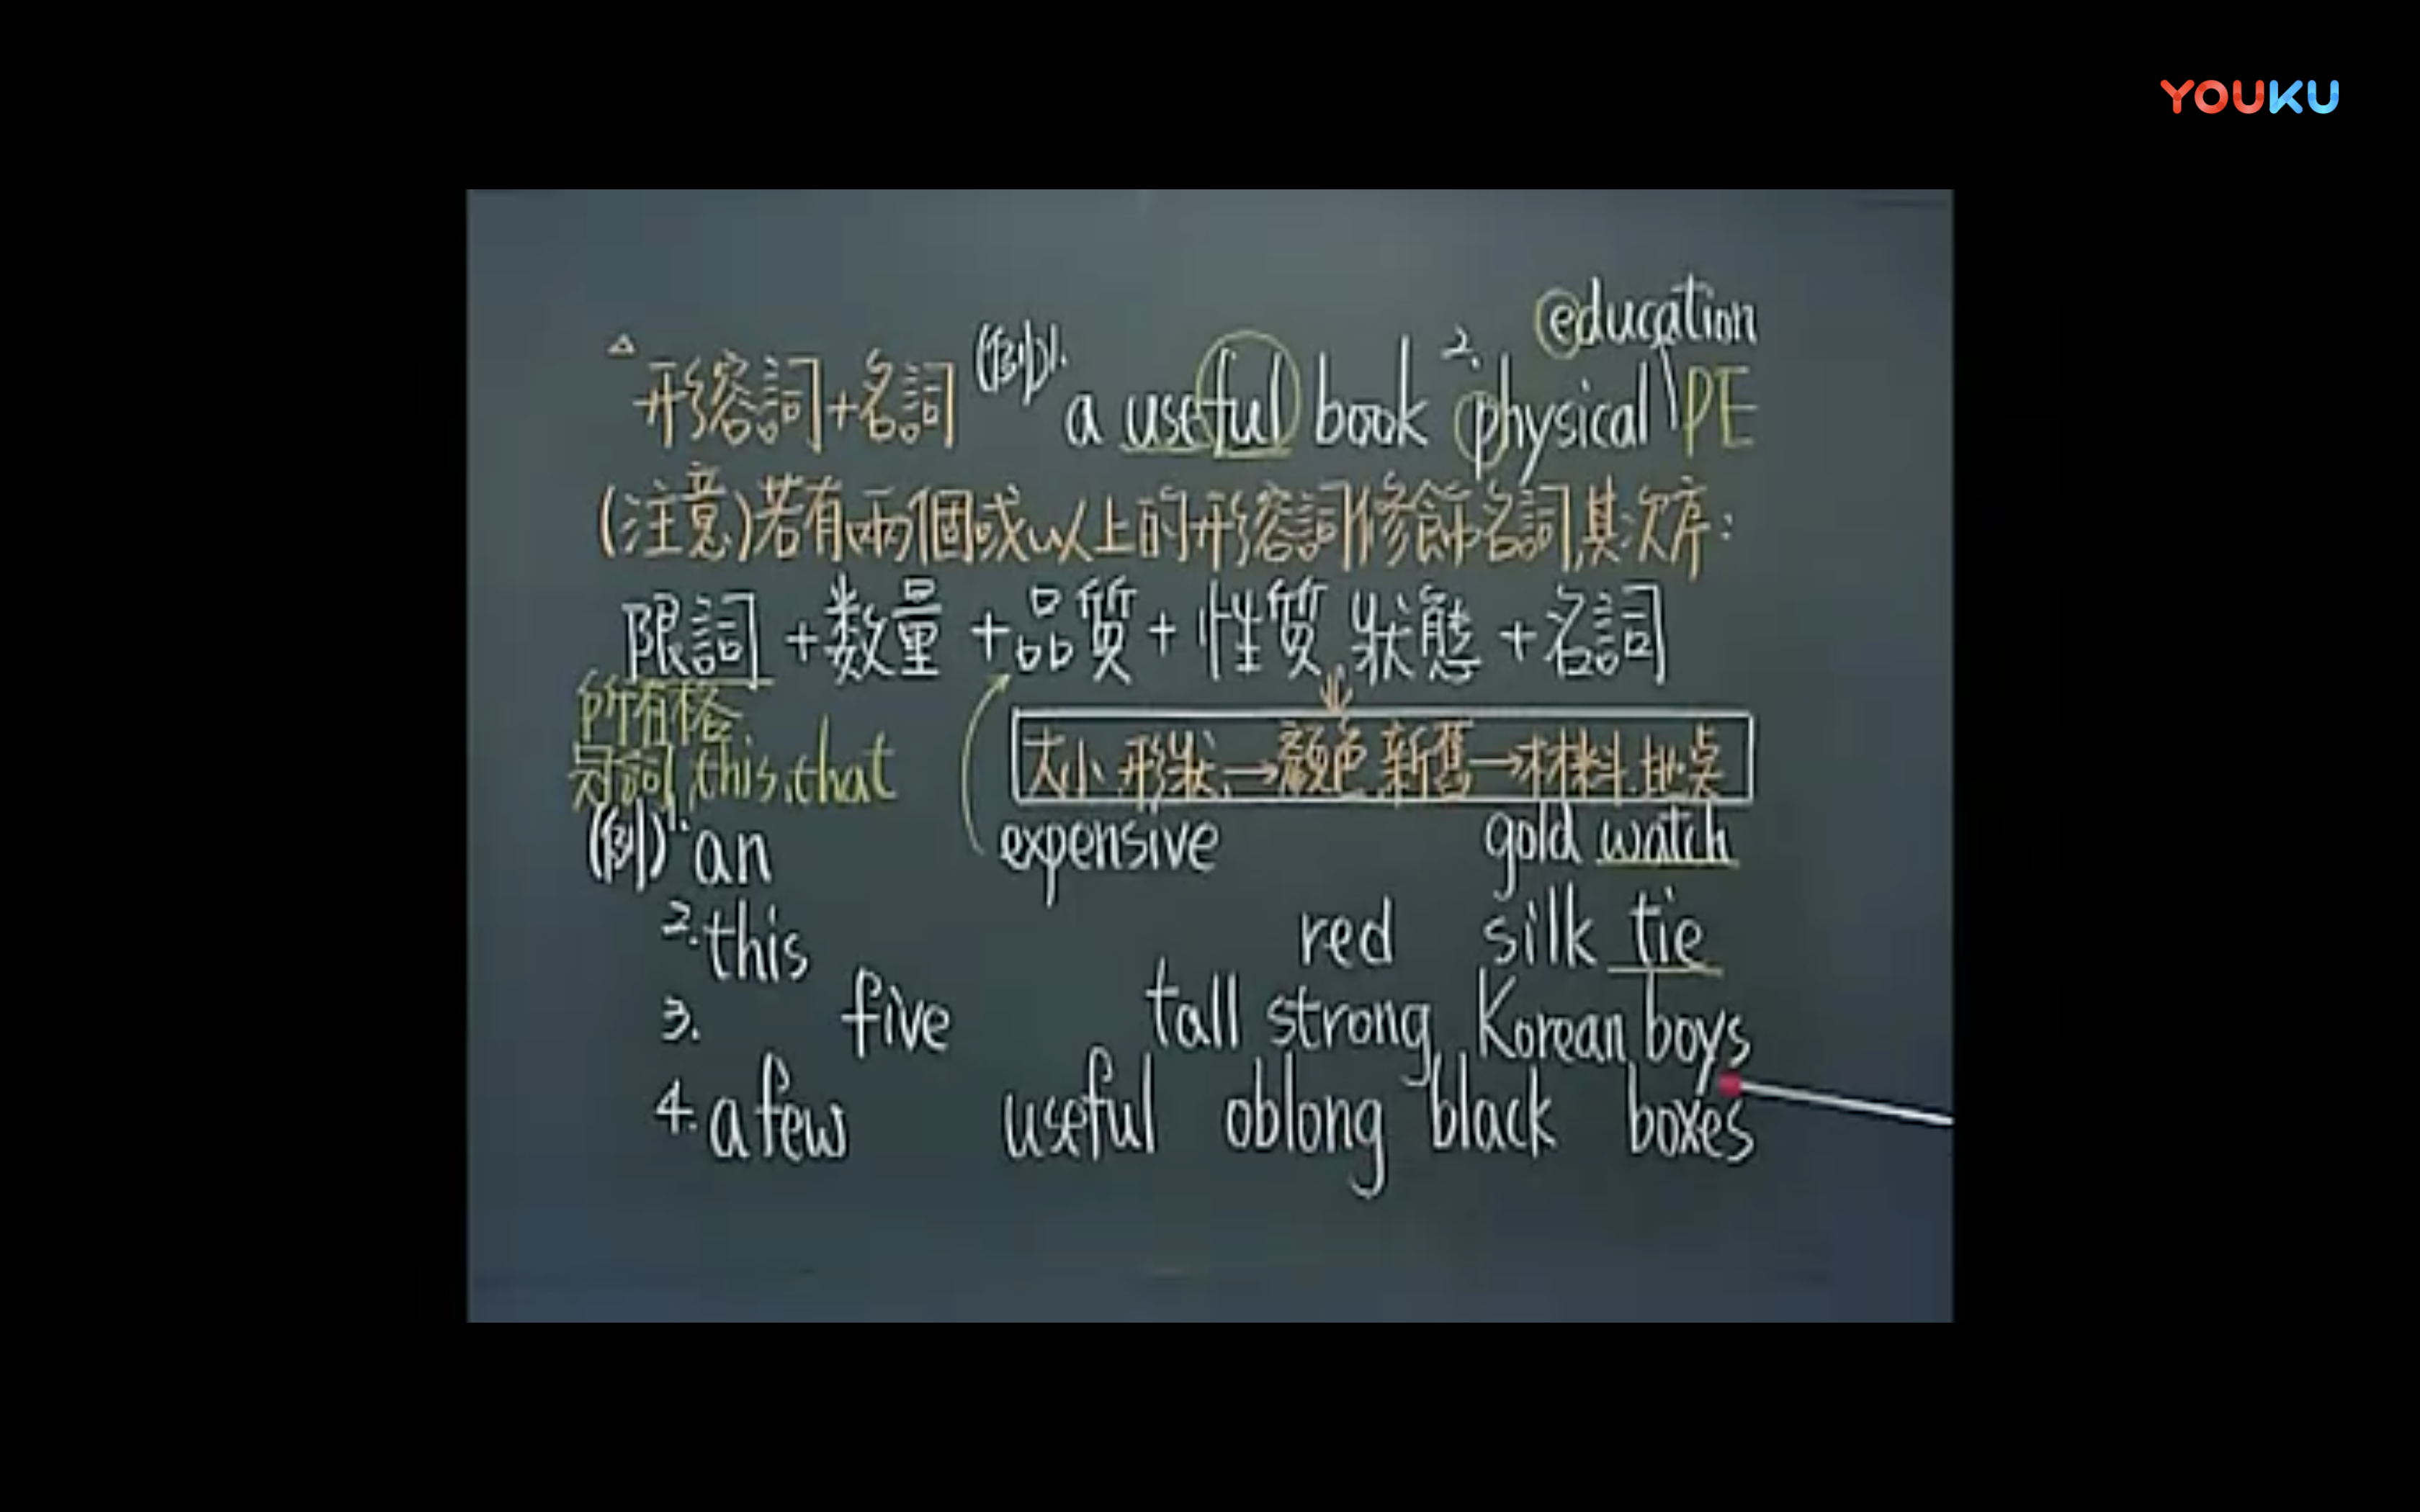 YOUKU
education
△形容詞+名詞 (例)1. a useful book 2. physical \ PE
(注意)若有兩個或以上的形容詞修飾名詞,其次序:
限詞+数量+品質+性質,狀態+名詞
所有格
冠詞,this,that
大小,形狀,→顏色,新舊→材料,地點
(例)1. an expensive gold watch
2. this red silk tie
3. five tall strong Korean boys
4. a few useful oblong black boxes